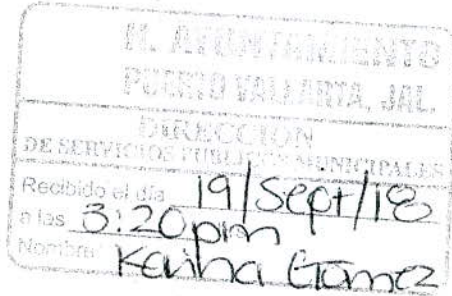 H. AYUNTAMIENTO
PUERTO VALLARTA, JAL.
DIRECCION
DE SERVICIOS PUBLICOS MUNICIPALES
Recibido el día 19/Sept/18
a las 3:20 pm
Nombre: Karina Gomez